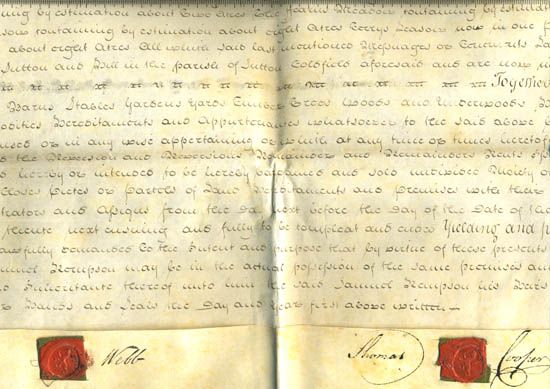 ing by estimation about Two Acres Meadow containing by estimat
containing by estimation about eight Acres Terrys Leasow now in one
about eight Acres All which said last mentioned Messuages or Tenements La
Sutton and Hill in the parish of Sutton Coldfield aforesaid and are now in
Together
Barns Stables Gardens Yards Timber Trees Woods and Underwoods
Hereditaments and Appurtenances whatsoever to the said above
or in any wise appertaining or with at any time or times heretofo
the Reversion and Reversions Remainder and Remainders Rents
hereby or intended to be hereby bargained and sold undivided Moiety or
Closes pieces or parcels of Land Hereditaments and premises with their
trators and Assigns from the Day next before the Day of the Date of the
thence next ensuing and fully to be compleat and ended Yielding and p
lawfully demanded To the Intent and purpose that by virtue of these presents
Samuel Kempson may be in the actual possession of the same premises an
Inheritance thereof unto him the said Samuel Kempson his Heirs
Hands and Seals the Day and Year first above written
Webb Thomas Cooper